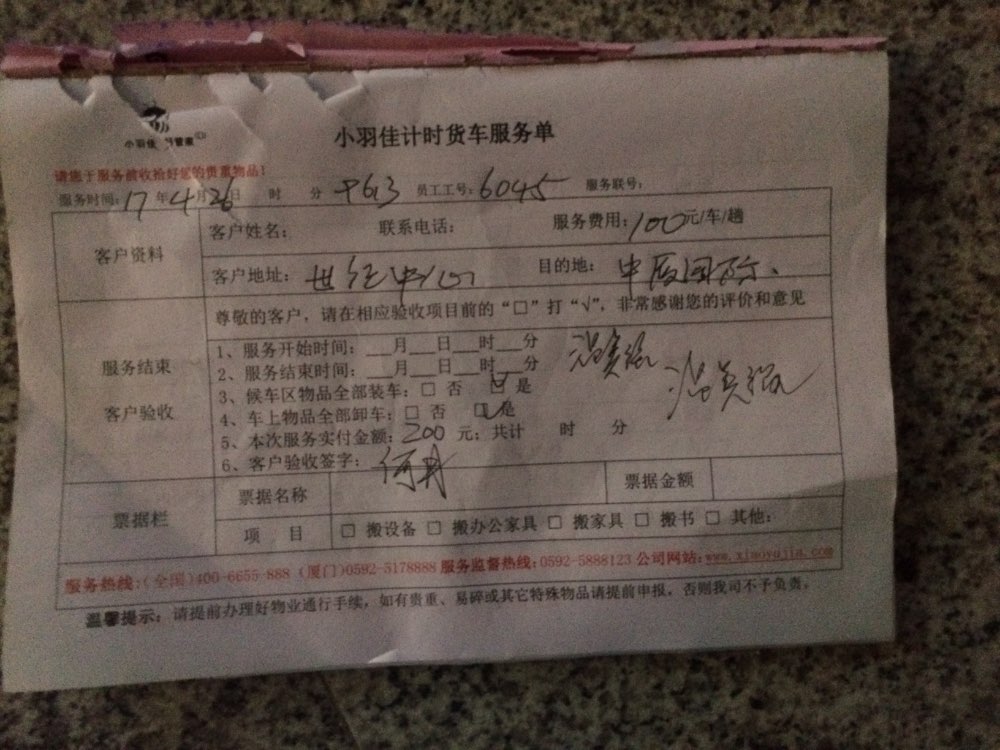 小羽佳 管家
小羽佳计时货车服务单
请您于服务前收拾好您的贵重物品!
服务时间: 17 年 4 月 26 日 时 分 员工工号: 6045 服务联号:
客户资料
客户姓名: 联系电话: 服务费用: 100 元/车/趟
客户地址: 世纪中心 目的地: 中厦国际、
尊敬的客户，请在相应验收项目前的“□”打“√”，非常感谢您的评价和意见
服务结束
客户验收
1、服务开始时间: __月__日__时__分
2、服务结束时间: __月__日__时__分
3、候车区物品全部装车: □ 否 ☑ 是
4、车上物品全部卸车: □ 否 ☑ 是
5、本次服务实付金额: 200 元; 共计 时 分
6、客户验收签字: 何丹
票据栏
票据名称 票据金额
项 目 □ 搬设备 □ 搬办公家具 □ 搬家具 □ 搬书 □ 其他:
服务热线:(全国)400-6655-888 (厦门)0592-5178888 服务监督热线:0592-5888123 公司网站: www.xiaoyujia.com
温馨提示: 请提前办理好物业通行手续，如有贵重、易碎或其它特殊物品请提前申报，否则我司不予负责。